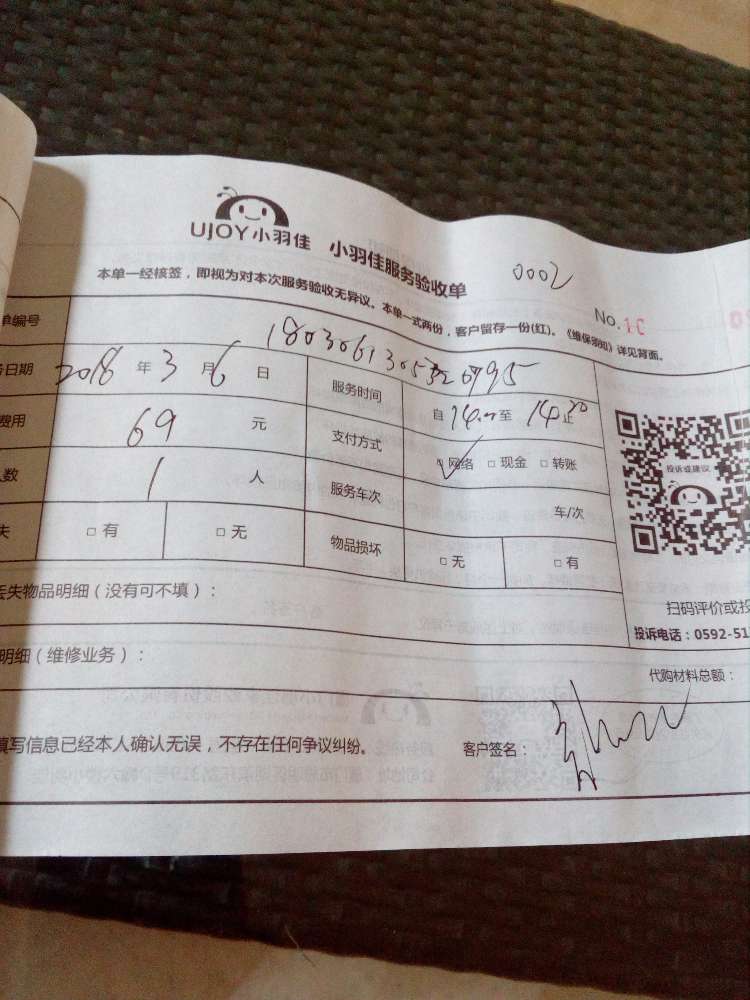 UJOY小羽佳 小羽佳服务验收单 0002
本单一经核签，即视为对本次服务验收无异议。本单一式两份，客户留存一份(红)。《维保须知》详见背面。
No.10
单编号
日期 2018 年 3 月 6 日 服务时间 自 14.00 至 14 30 止
费用 69 元 支付方式 网络 □ 现金 □ 转账
人数 1 人 服务车次 车/次
失 □ 有 □ 无 物品损坏 □ 无 □ 有
投诉或建议
扫码评价或投
投诉电话：0592-51
丢失物品明细（没有可不填）：
明细（维修业务）：
代购材料总额：
填写信息已经本人确认无误，不存在任何争议纠纷。 客户签名：